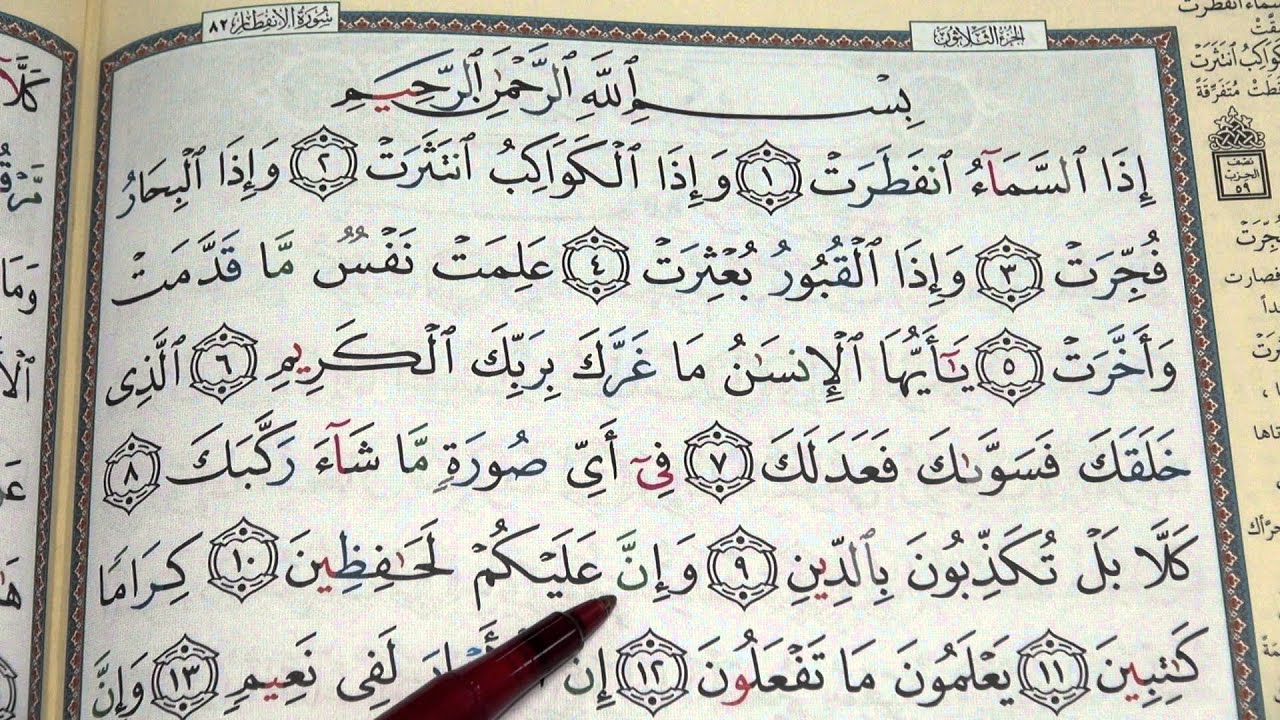 سُورَةُ الانفِطَار ٨٢
الجُزءُ الثَّلَاثُونَ
بِسْمِ ٱللَّهِ ٱلرَّحْمَٰنِ ٱلرَّحِيمِ
إِذَا ٱلسَّمَآءُ ٱنفَطَرَتْ ١ وَإِذَا ٱلْكَوَاكِبُ ٱنتَثَرَتْ ٢ وَإِذَا ٱلْبِحَارُ
فُجِّرَتْ ٣ وَإِذَا ٱلْقُبُورُ بُعْثِرَتْ ٤ عَلِمَتْ نَفْسٌ مَّا قَدَّمَتْ
وَأَخَّرَتْ ٥ يَٰٓأَيُّهَا ٱلْإِنسَٰنُ مَا غَرَّكَ بِرَبِّكَ ٱلْكَرِيمِ ٦ ٱلَّذِى
خَلَقَكَ فَسَوَّىٰكَ فَعَدَلَكَ ٧ فِىٓ أَىِّ صُورَةٍ مَّا شَآءَ رَكَّبَكَ ٨
كَلَّا بَلْ تُكَذِّبُونَ بِٱلدِّينِ ٩ وَإِنَّ عَلَيْكُمْ لَحَٰفِظِينَ ١٠ كِرَامًا
كَٰتِبِينَ ١١ يَعْلَمُونَ مَا تَفْعَلُونَ ١٢ إِنَّ لَفِى نَعِيمٍ ١٣ وَإِنَّ
نصف
الحزب
٥٩